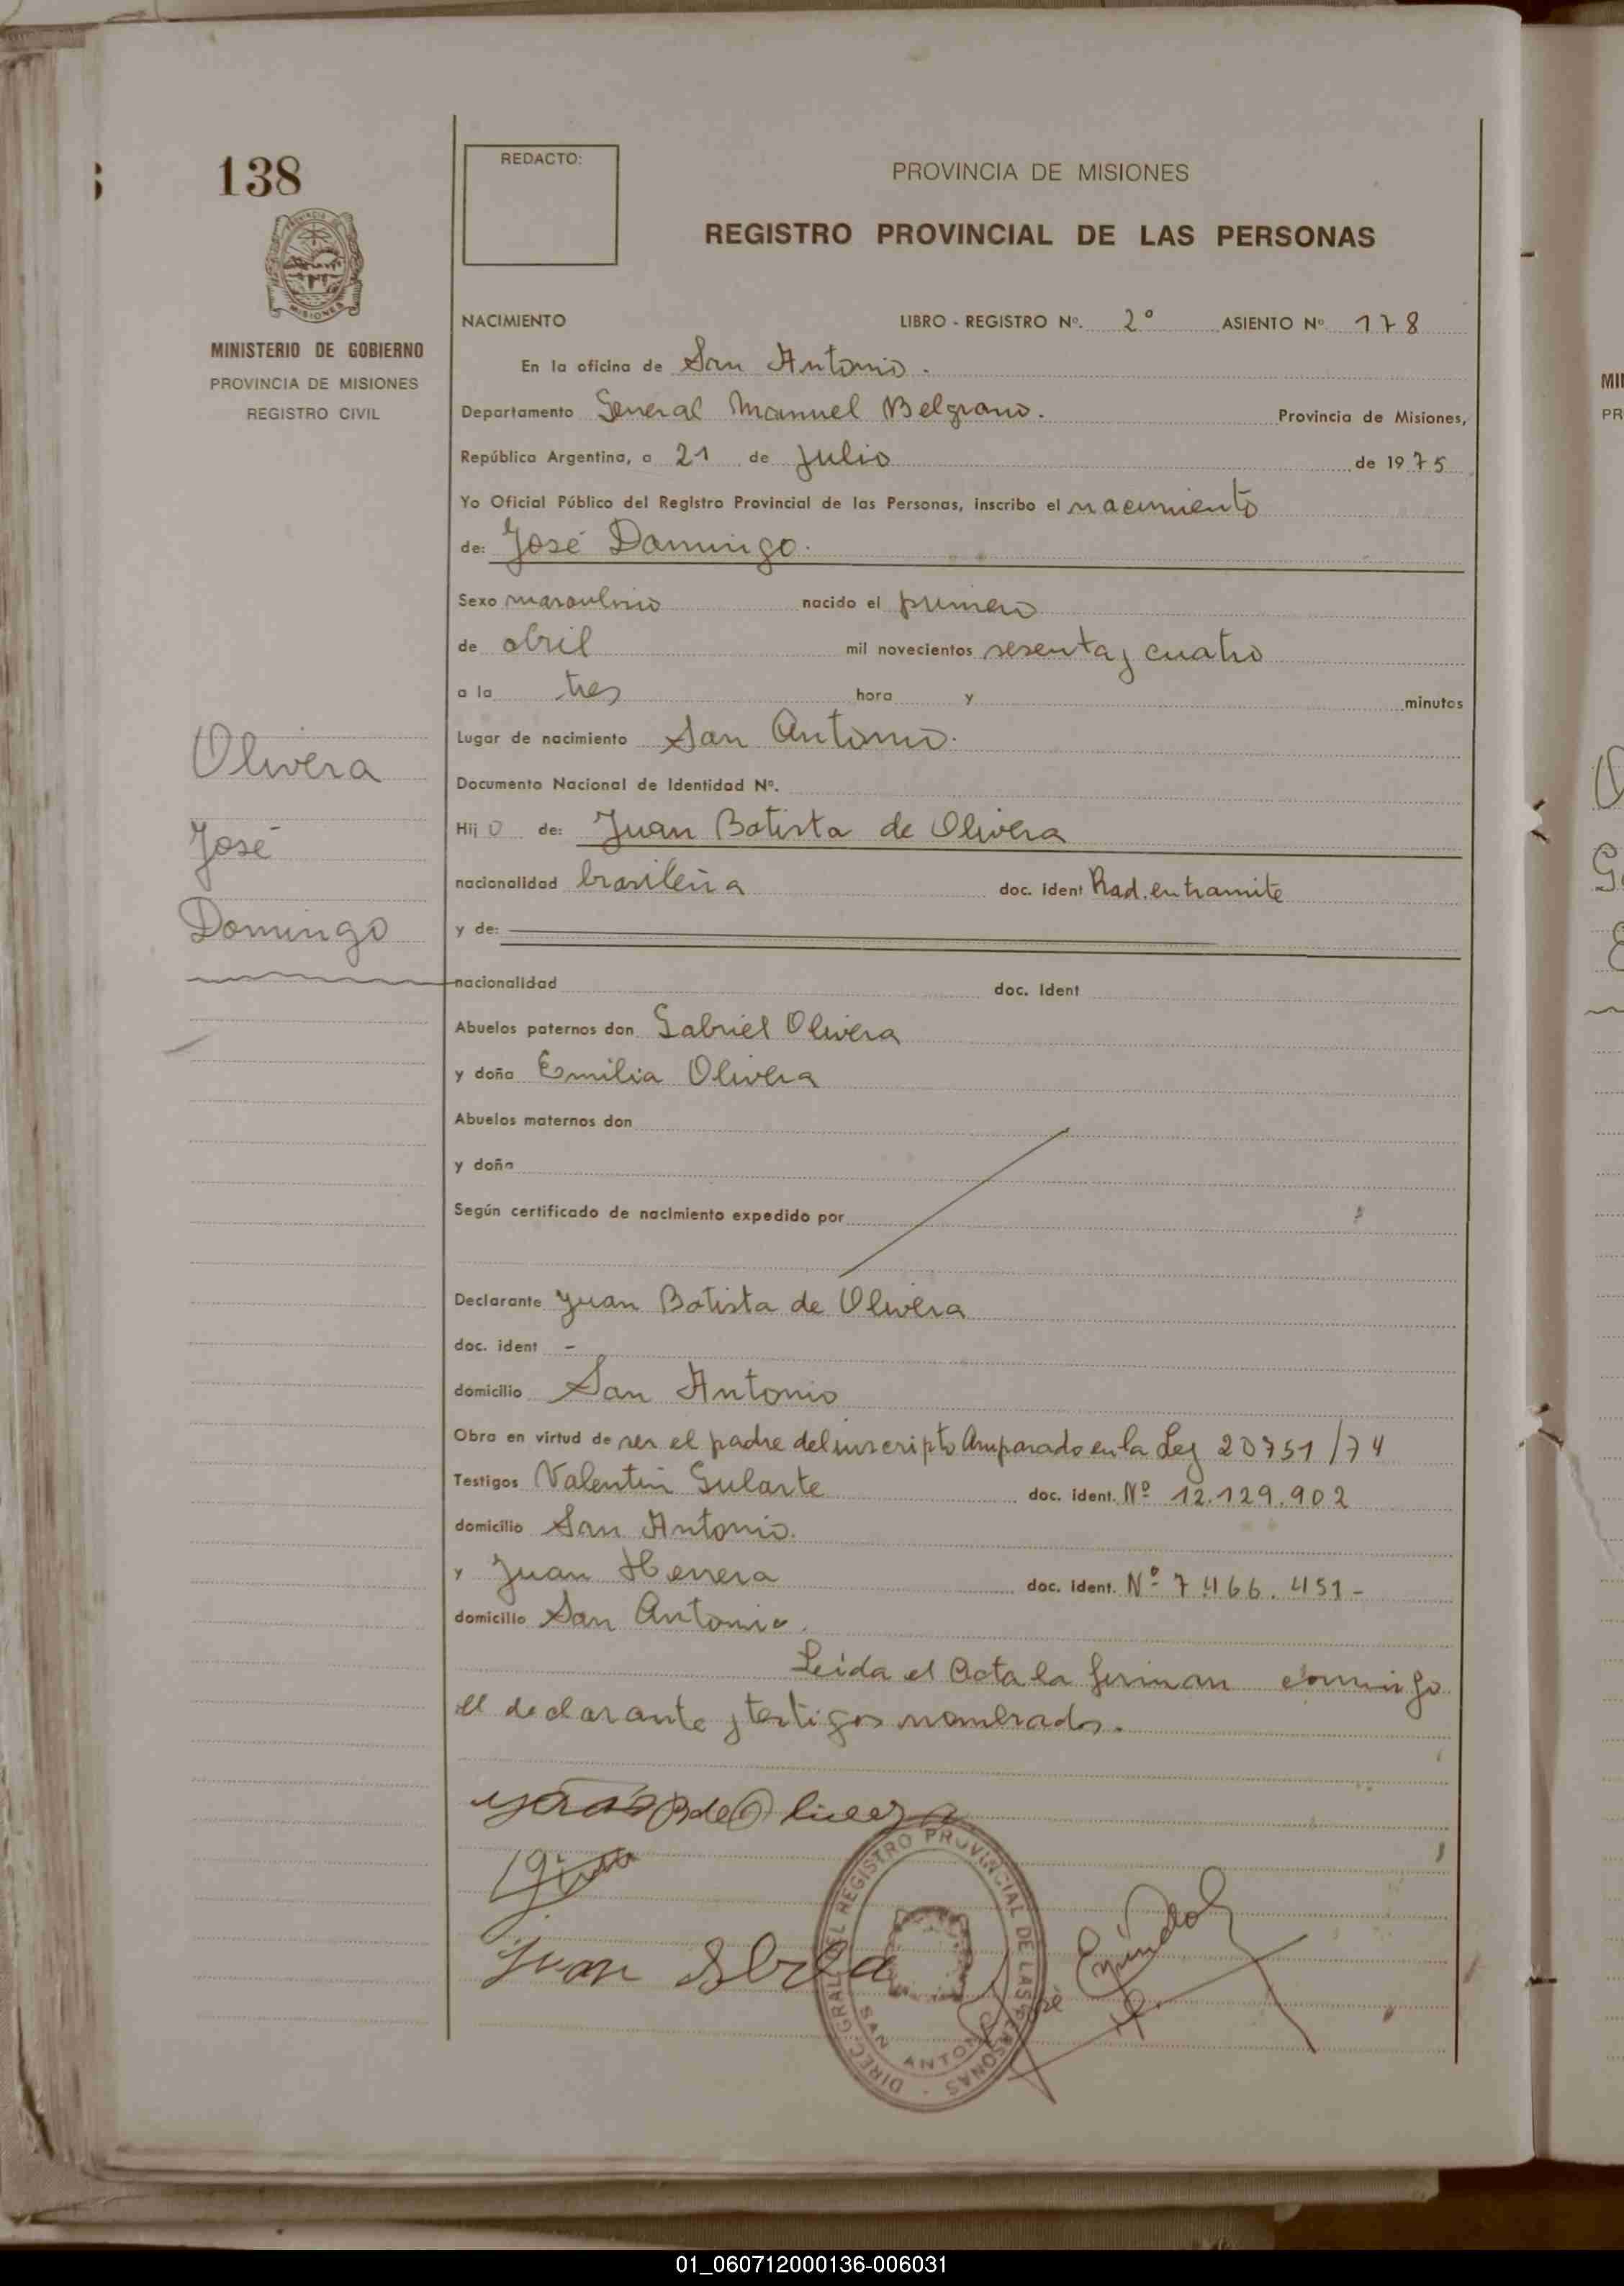 138
REDACTO:
PROVINCIA DE MISIONES
REGISTRO PROVINCIAL DE LAS PERSONAS
MINISTERIO DE GOBIERNO
PROVINCIA DE MISIONES
REGISTRO CIVIL
NACIMIENTO LIBRO - REGISTRO Nº. 2º ASIENTO Nº 178
En la oficina de San Antonio.
Departamento General Manuel Belgrano. Provincia de Misiones,
República Argentina, a 21 de Julio de 1975
Yo Oficial Público del Registro Provincial de las Personas, inscribo el nacimiento
de: José Domingo.
Sexo masculino nacido el primero
de abril mil novecientos sesenta y cuatro
a la tres hora y minutos
Lugar de nacimiento San Antonio.
Documento Nacional de Identidad Nº.
Hijo de: Juan Batista de Olivera
nacionalidad brasileña doc. ident Rad. en tramite
y de:
nacionalidad doc. ident
Abuelos paternos don Gabriel Olivera
y doña Emilia Olivera
Abuelos maternos don
y doña
Según certificado de nacimiento expedido por
Declarante Juan Batista de Olivera
doc. ident -
domicilio San Antonio
Obra en virtud de ser el padre del inscripto Amparado en la Ley 20751/74
Testigos Valentin Gularte doc. ident. Nº 12.129.902
domicilio San Antonio.
y Juan Herrera doc. ident. Nº 7.466.451-
domicilio San Antonio.
Leida el Acta la firman conmigo
el declarante y testigos nombrados.
Olivera
José
Domingo
Juan
DIREC. GRAL. DEL REGISTRO PROVINCIAL DE LAS PERSONAS
SAN ANTONIO
01_060712000136-006031